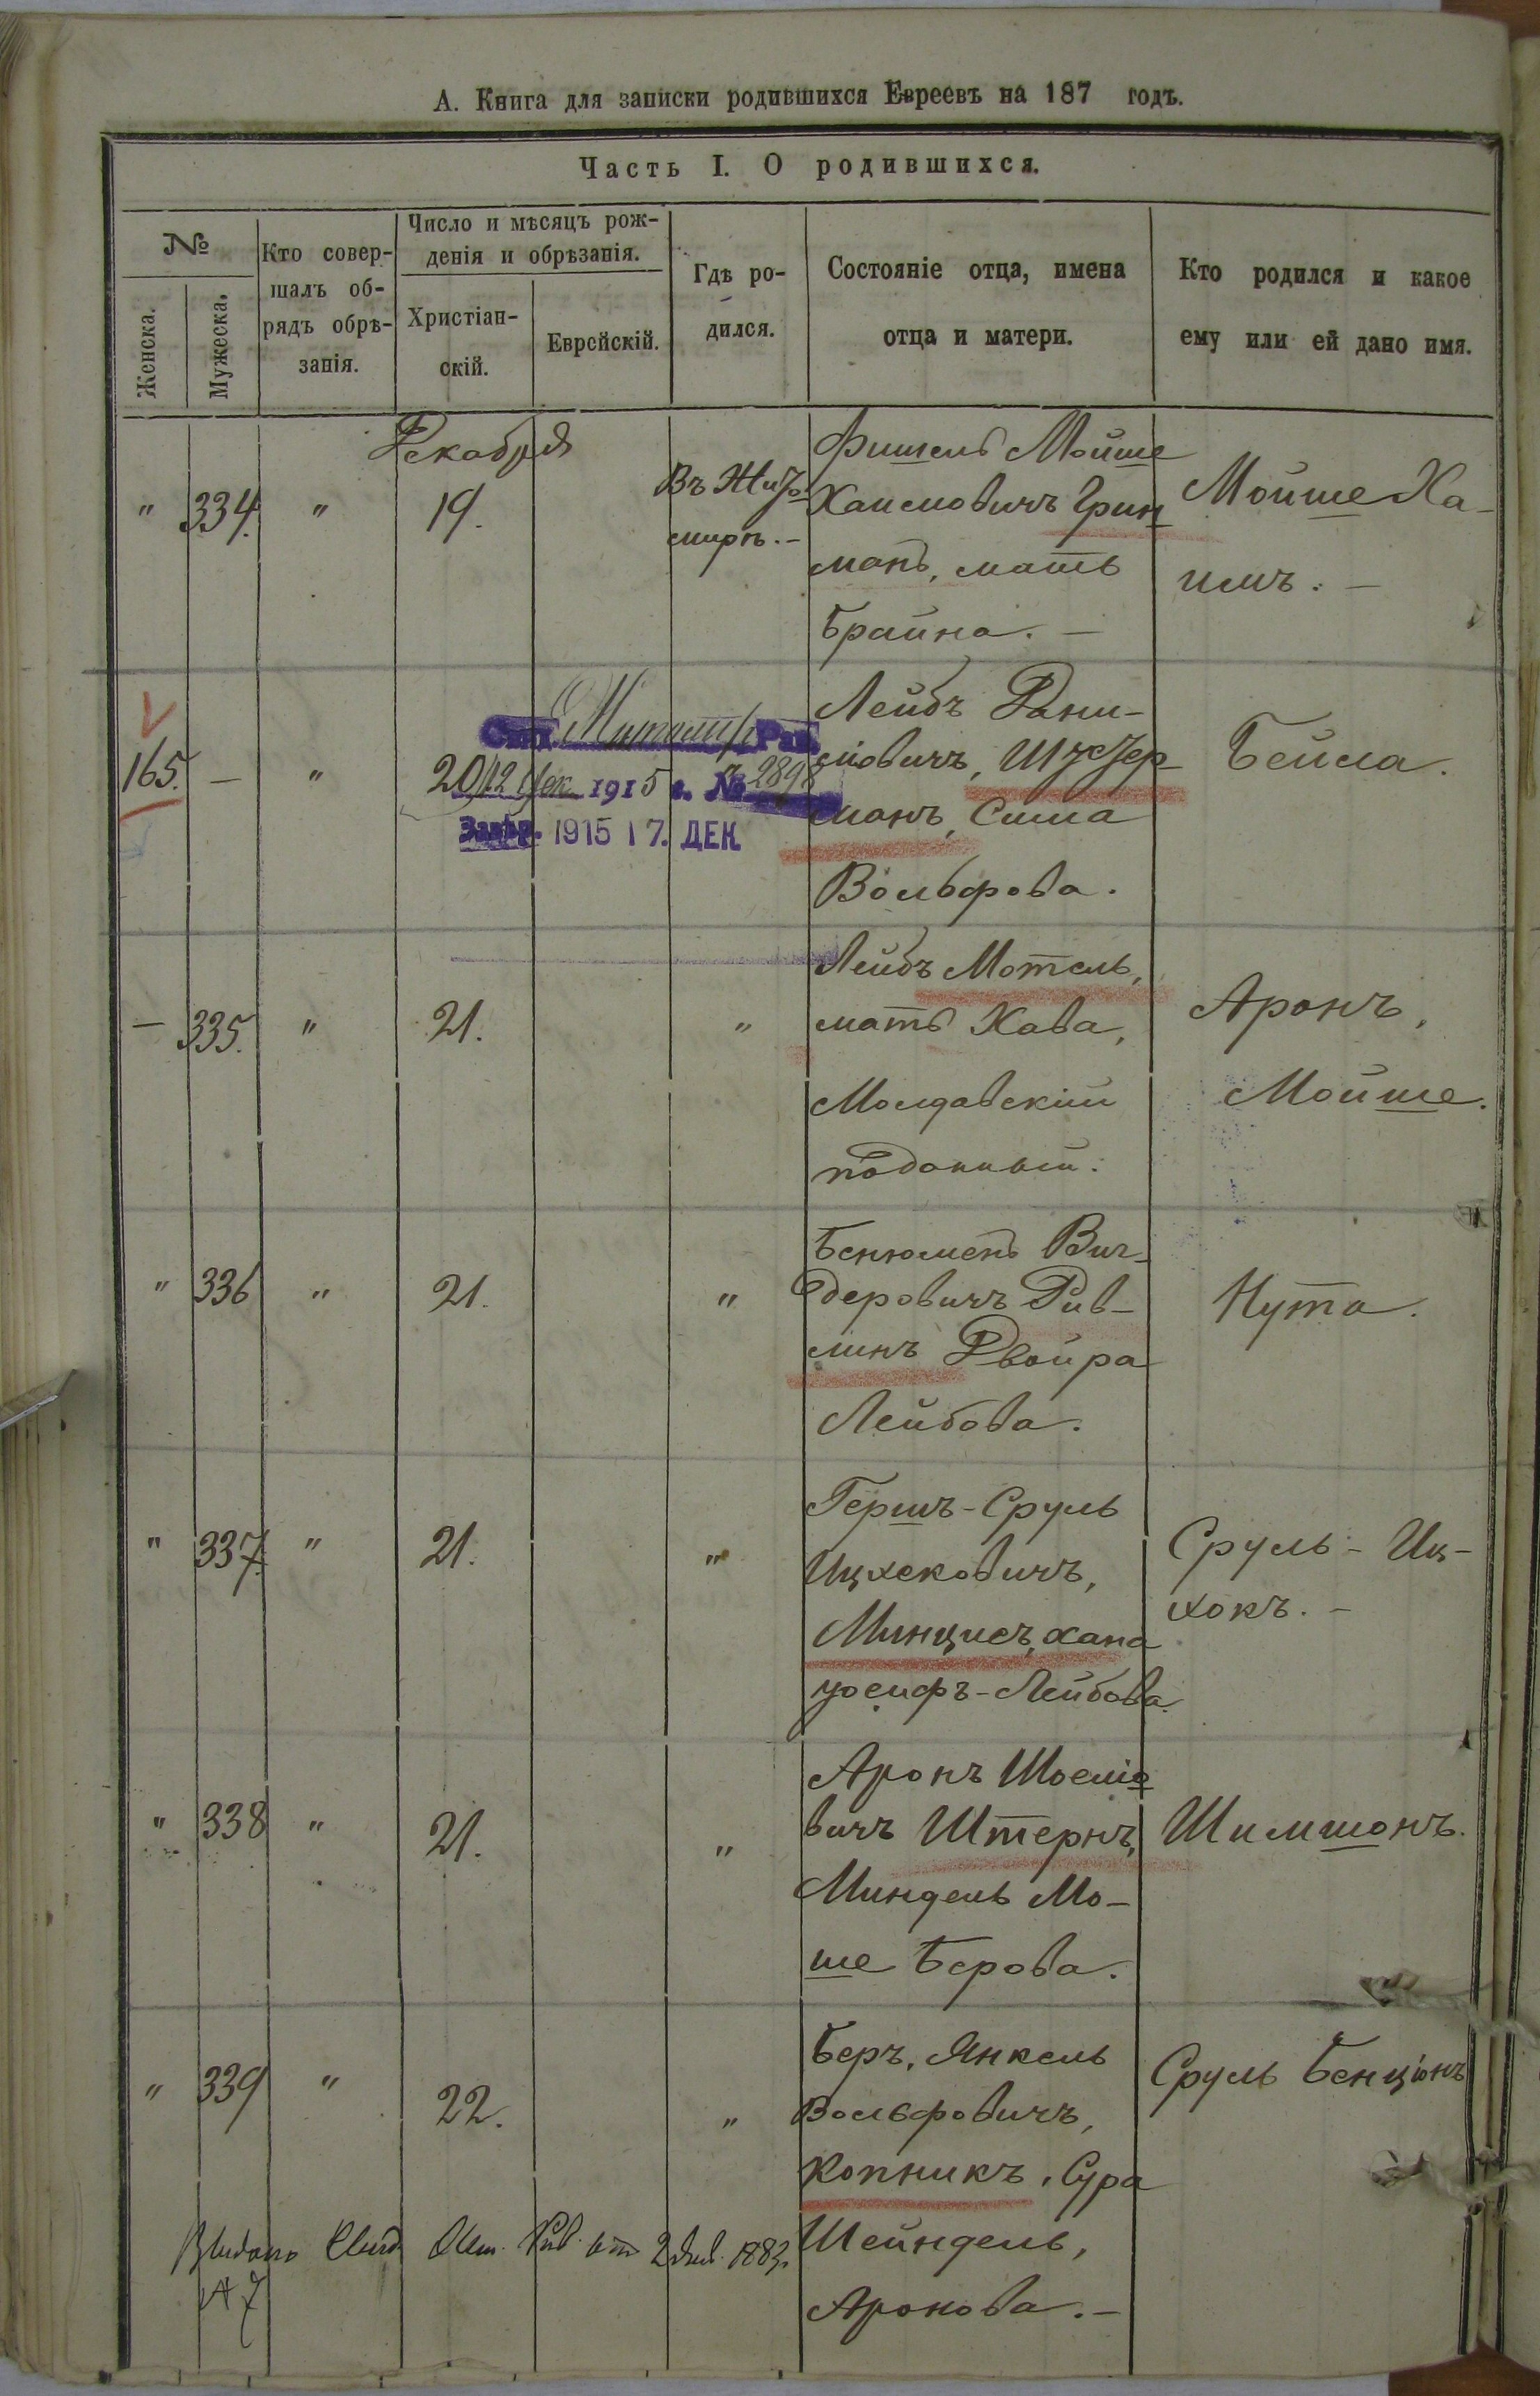 А. Книга для записки родившихся Евреевъ на 187 годъ.
Часть I. О родившихся.
№
Женска.
Мужеска.
Кто совер-
шалъ об-
рядъ обрѣ-
занія.
Число и мѣсяцъ рож-
денія и обрѣзанія.
Христіан-
скій.
Еврейскій.
Гдѣ ро-
дился.
Состояніе отца, имена
отца и матери.
Кто родился и какое
ему или ей дано имя.
Декабря
" 334. " 19.
Въ Жито
мирѣ.-
Фишель Мойше
Хаимовичъ Грин
манъ, мать
Брайна. -
Мойше Ха-
имъ. -
165. - " 20
12 Дек 1915 г. № 2898
1915 17. ДЕК.
Лейбъ Дани-
ловичъ,
манъ, Сима
Вольфова.
Бейла.
- 335. " 21. "
Лейбъ Мотель,
мать Хава,
Молдавскій
поданный.
Аронъ,
Мойше.
" 336 " 21. "
Бенюменъ Виг-
деровичъ Рив-
линъ Двойра
Лейбова.
Нута.
" 337. " 21. "
Гершъ-Сруль
Ицхековичъ,
Минцисъ, хана
иосифъ-Лейбова.
Сруль-Иц-
хокъ. -
" 338 " 21. "
Аронъ Шоеміо
вичъ Штернъ,
Миндель Мо-
ше Берова.
Шимшонъ.
" 339 " 22. "
Беръ, Янкель
Вольфовичъ,
Копникъ, Сура
Шейндель,
Аронова. -
Сруль Бенціонъ
Выдано Свид. 2 1883.
№ 7